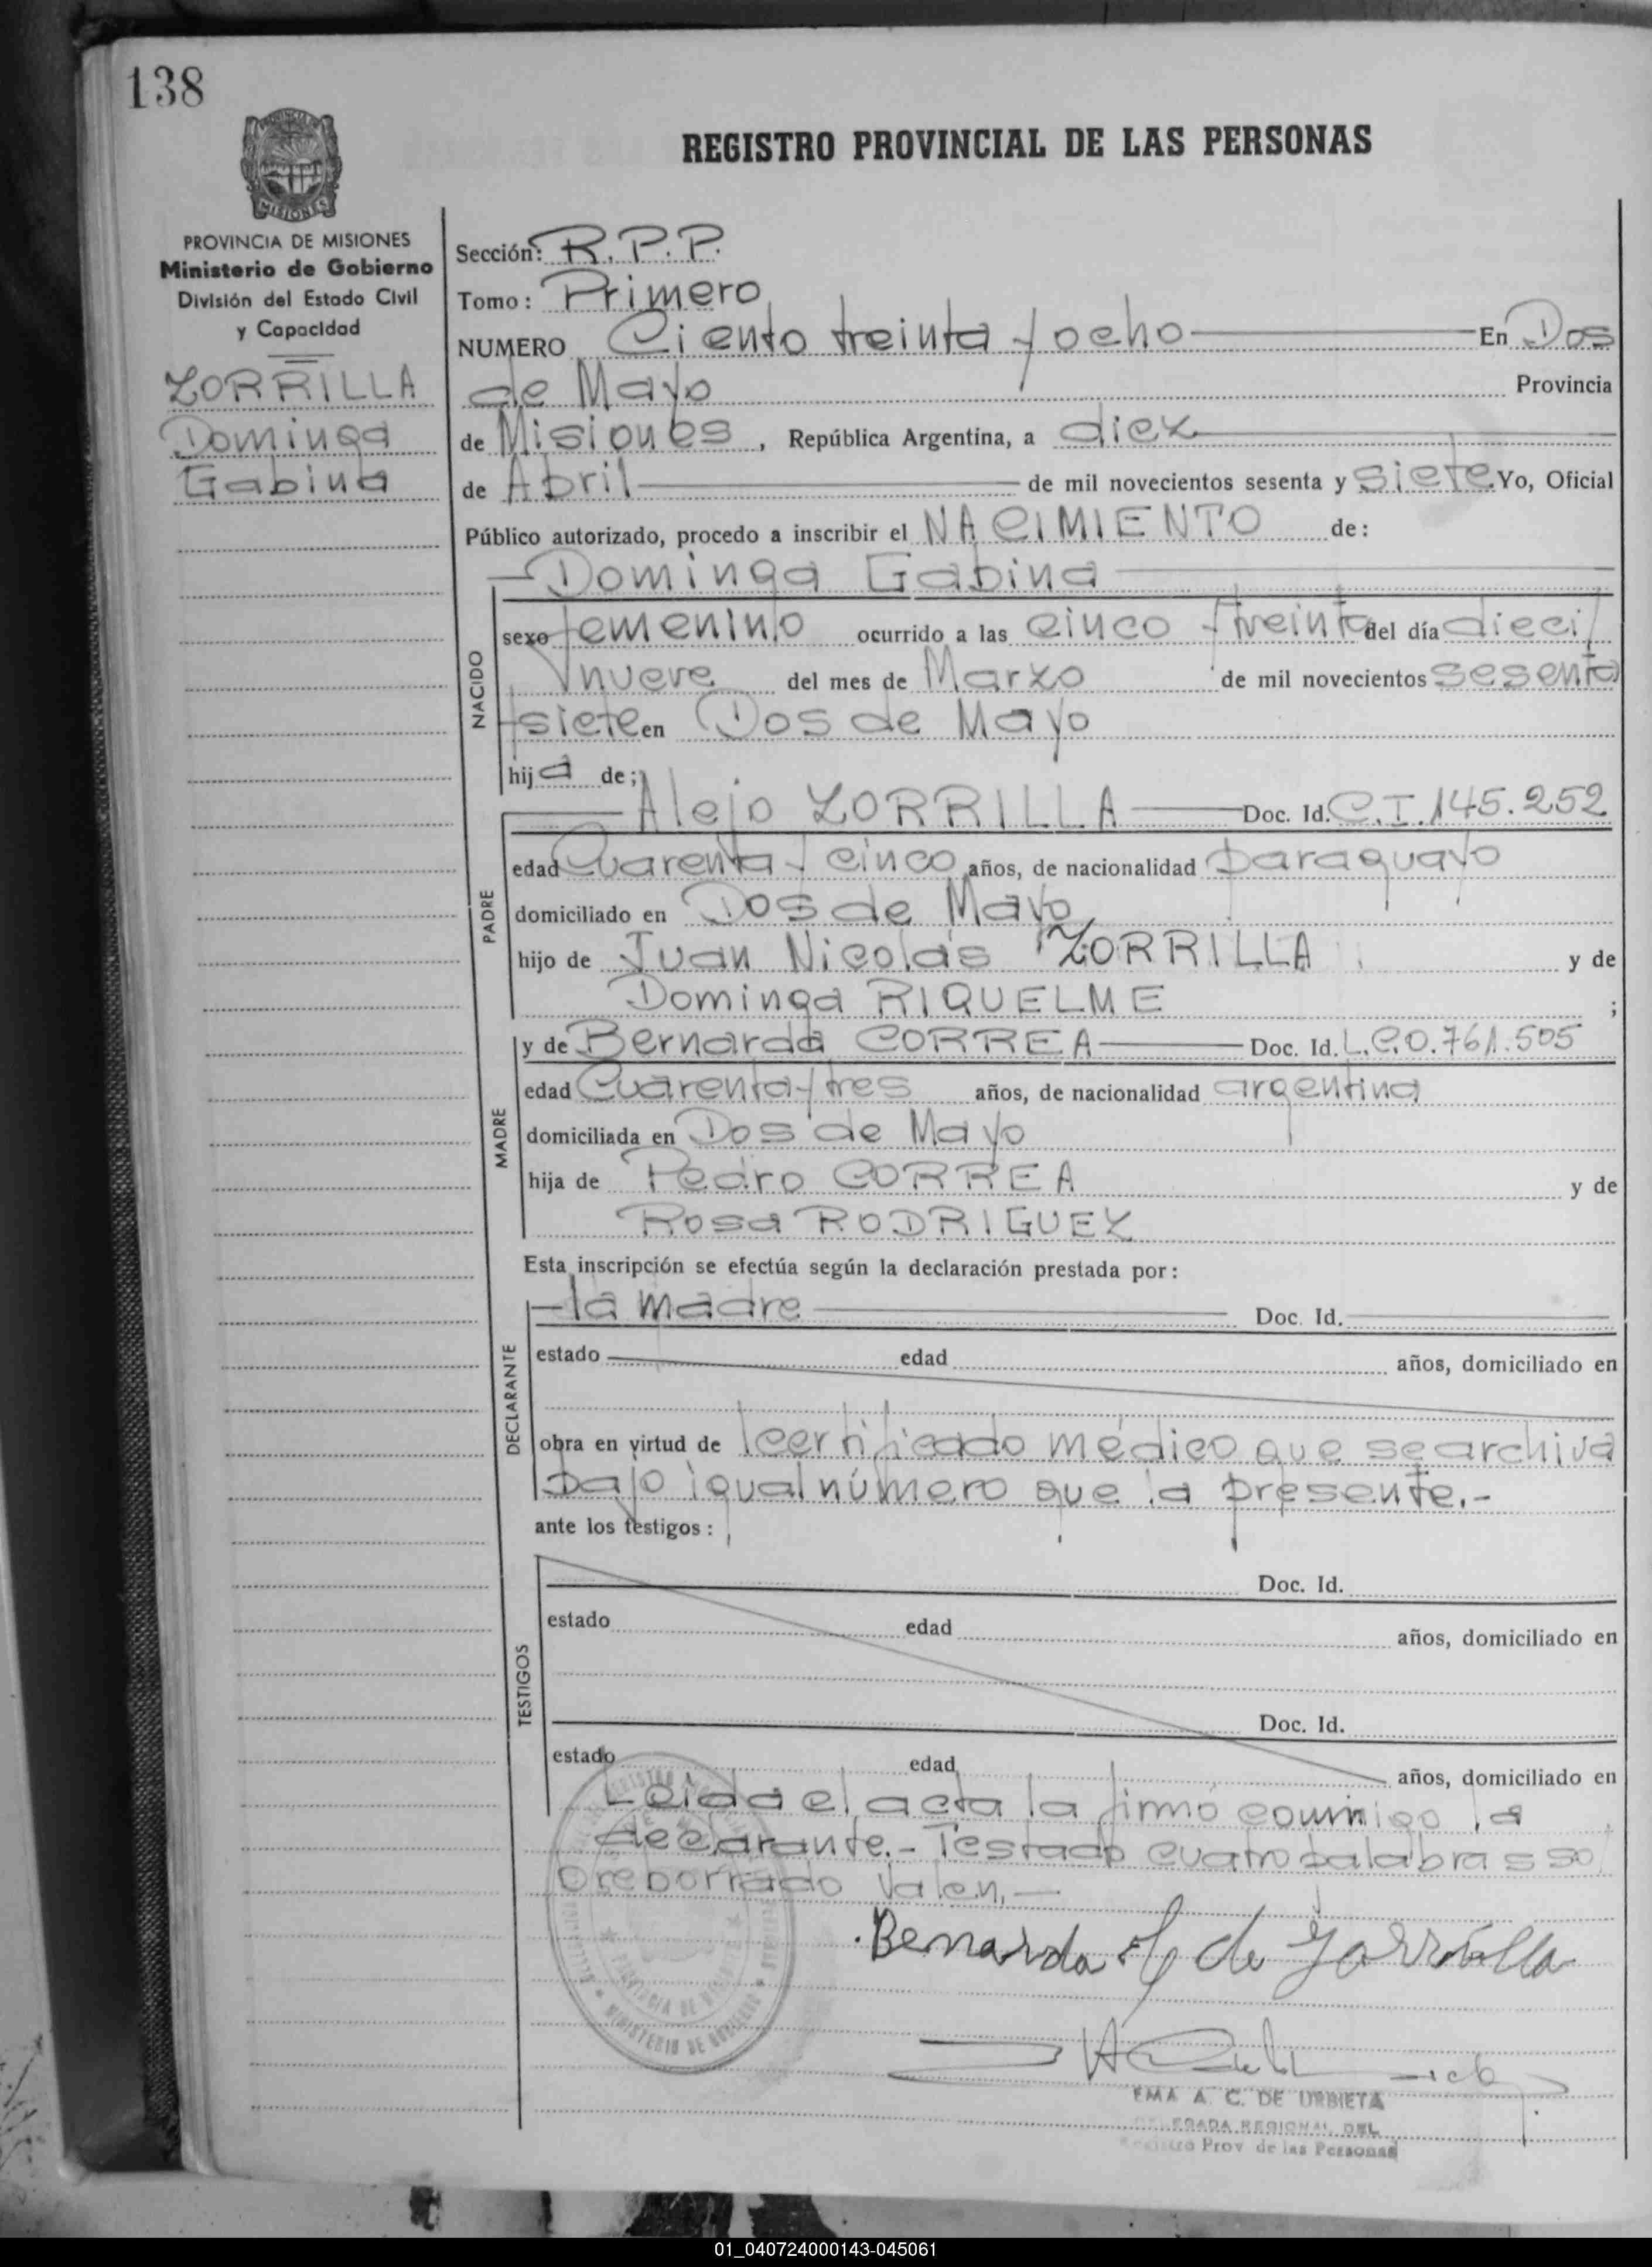 138
REGISTRO PROVINCIAL DE LAS PERSONAS
MISIONES
PROVINCIA DE MISIONES
Ministerio de Gobierno
División del Estado Civil
y Capacidad
ZORRILLA
Dominga
Gabina
Sección: R.P.P.
Tomo: Primero
NUMERO Ciento treinta y ocho En Dos
de Mayo Provincia
de Misiones, República Argentina, a diez
de Abril de mil novecientos sesenta y siete Yo, Oficial
Público autorizado, procedo a inscribir el NACIMIENTO de:
Dominga Gabina
NACIDO
sexo femenino ocurrido a las cinco y treinta del día dieci
nueve del mes de Marzo de mil novecientos sesenta
y siete en Dos de Mayo
hija de;
PADRE
Alejo ZORRILLA Doc. Id. C.I. 145.252
edad Cuarenta y cinco años, de nacionalidad paraguayo
domiciliado en Dos de Mayo
hijo de Juan Nicolás ZORRILLA y de
Dominga RIQUELME ;
MADRE
y de Bernarda CORREA Doc. Id. L.C.0.761.505
edad Cuarenta y tres años, de nacionalidad argentina
domiciliada en Dos de Mayo
hija de Pedro CORREA y de
Rosa RODRIGUEZ
Esta inscripción se efectúa según la declaración prestada por:
DECLARANTE
la madre Doc. Id.
estado edad años, domiciliado en
obra en virtud de certificado médico que se archiva
bajo igual número que la presente.-
ante los testigos:
TESTIGOS
Doc. Id.
estado edad años, domiciliado en
Doc. Id.
estado edad años, domiciliado en
Leída el acta la firmó conmigo la
declarante.- Testado cuatro palabras so
breborrado Valen.-
Bernarda de Zorrilla
MINISTERIO DE GOBIERNO
EMA A. C. DE URBIETA
DELEGADA REGIONAL DEL
Registro Prov de las Personas
01_040724000143-045061